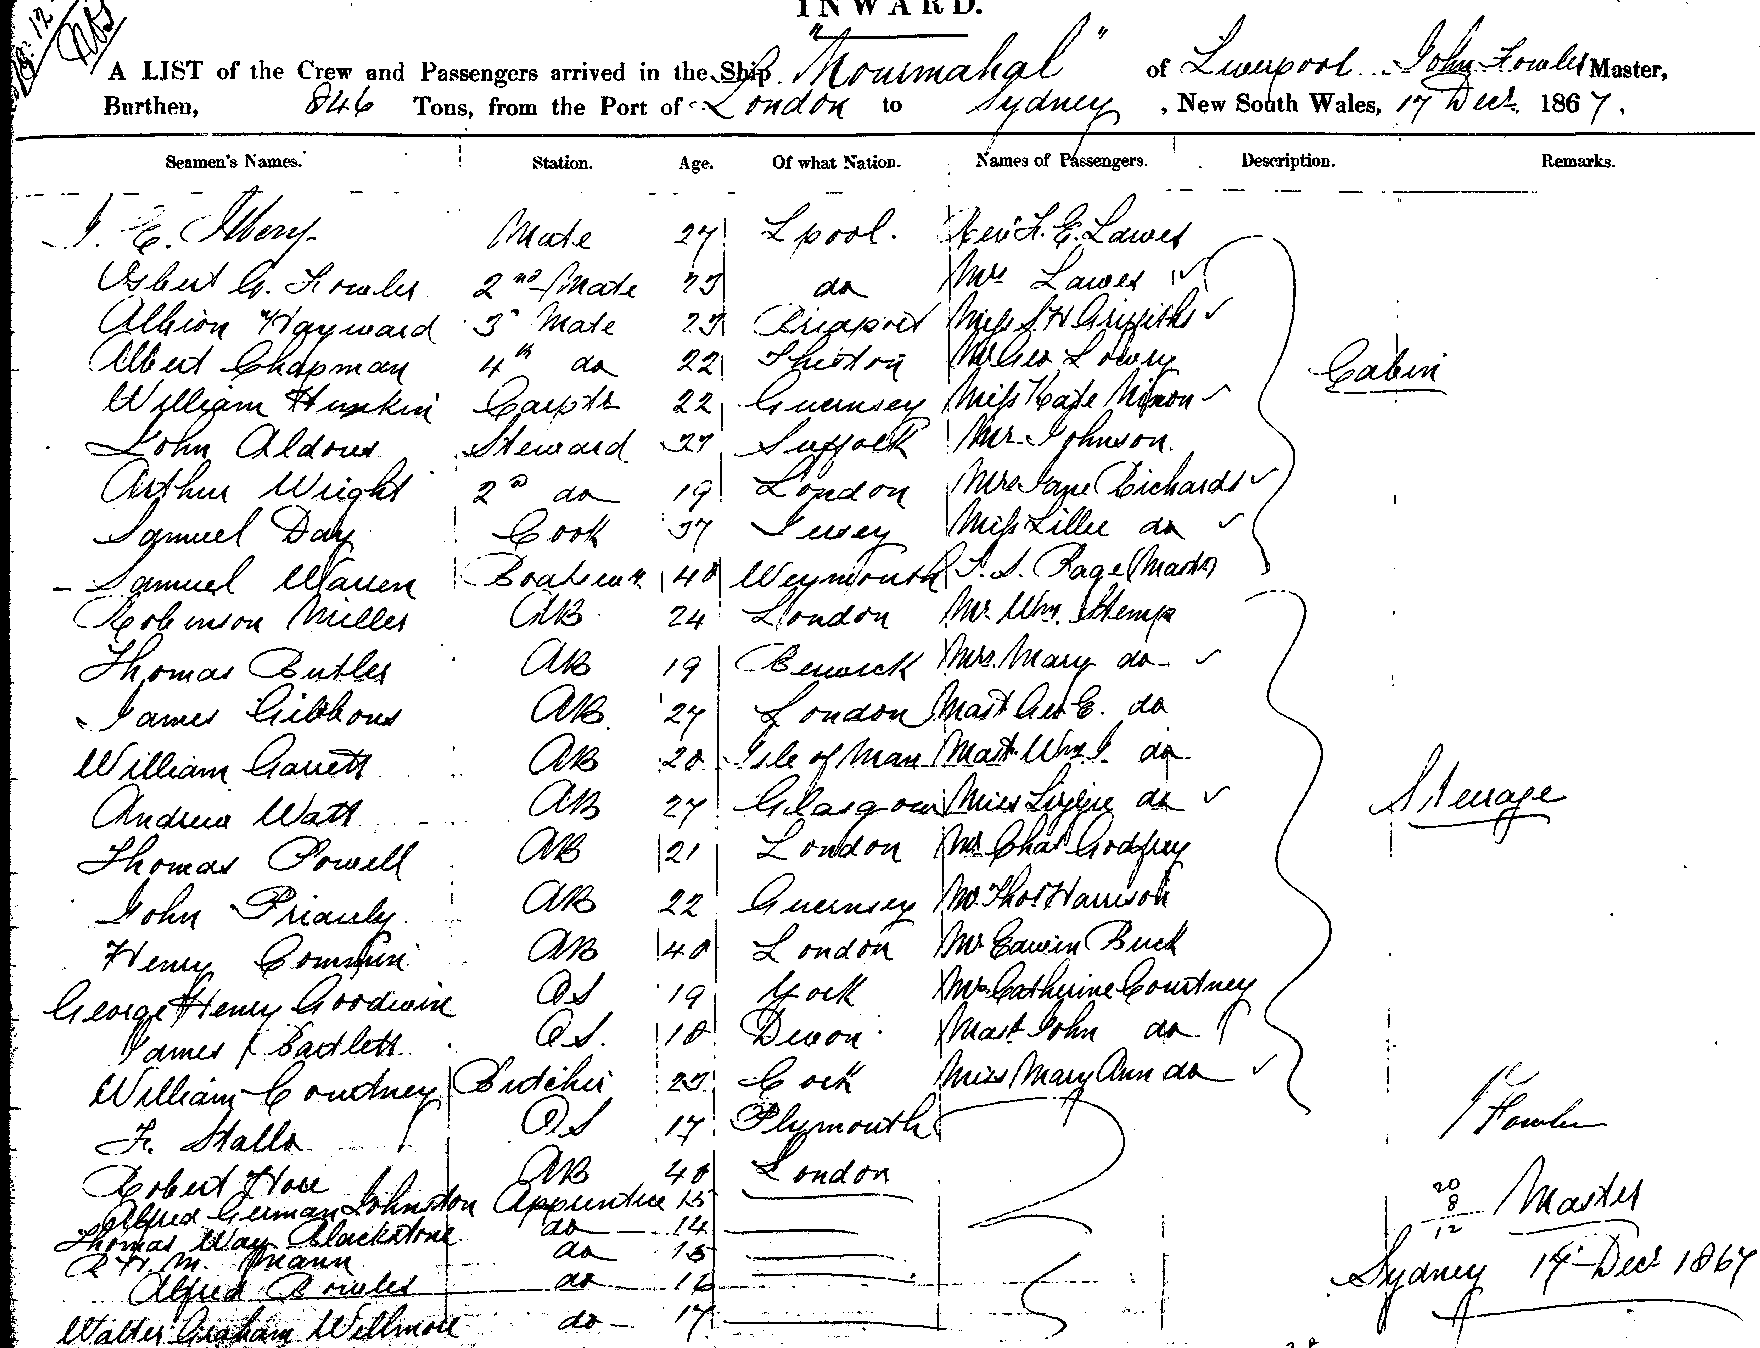 INWARD.
A LIST of the Crew and Passengers arrived in the Ship "Nourmahal" of Liverpool John Fowler Master,
Burthen, 846 Tons, from the Port of London to Sydney, New South Wales, 17 Decr. 1867.
Seamen's Names. Station. Age. Of what Nation. Names of Passengers. Description. Remarks.
J. E. Mate 27 Lpool. Revd. F. E. Lawes
Osbert G. Fowler 2nd Mate 23 do Mrs Lawes
Albion Hayward 3d Mate 23 Miss S H Griffiths
Albert Chapman 4th do 22 Mr Geo Lowry Cabin
William Huskin Carptr 22 Guernsey Miss Kate Nixon
John Aldous Steward 37 Suffolk Mr Johnson
Arthur Wright 2d do 19 London Mrs Jane Richards
Samuel Day Cook 37 Jersey Miss Lillie do
Samuel Warren Boatswn 40 Weymouth T. S. Page (Mastr)
Robinson Miller AB 24 London Mr. Wm. Stemp
Thomas Butler AB 19 Berwick Mrs. Mary do
James Gibbons AB 27 London Mastr Geo E. do
William Garrett AB 20 Isle of Man Mastr Wm J. do
Andrew Watt AB 27 Glasgow Miss Lizzie do Steerage
Thomas Powell AB 21 London Mr Chas Godfrey
John Priauly AB 22 Guernsey Mr. Thos Harrison
Henry Commin AB 40 London Mr Edwin Buck
George Henry Goodwin OS 19 York Mrs Catherine Courtney
James Bartlett OS. 18 Devon Mastr John do
William Courtney Butcher 23 Cork Miss Mary Ann do
Fr. Stalls OS 17 Plymouth J Fowler
Robert Hore AB 40 London
Alfred German Johnston Apprentice 15 Master
Thomas Way Blackstone do 14
M. Mann do 15 Sydney 17 Decr 1867
Alfred Bowles do 16
Walter Graham Willmore do 17
20
8
12